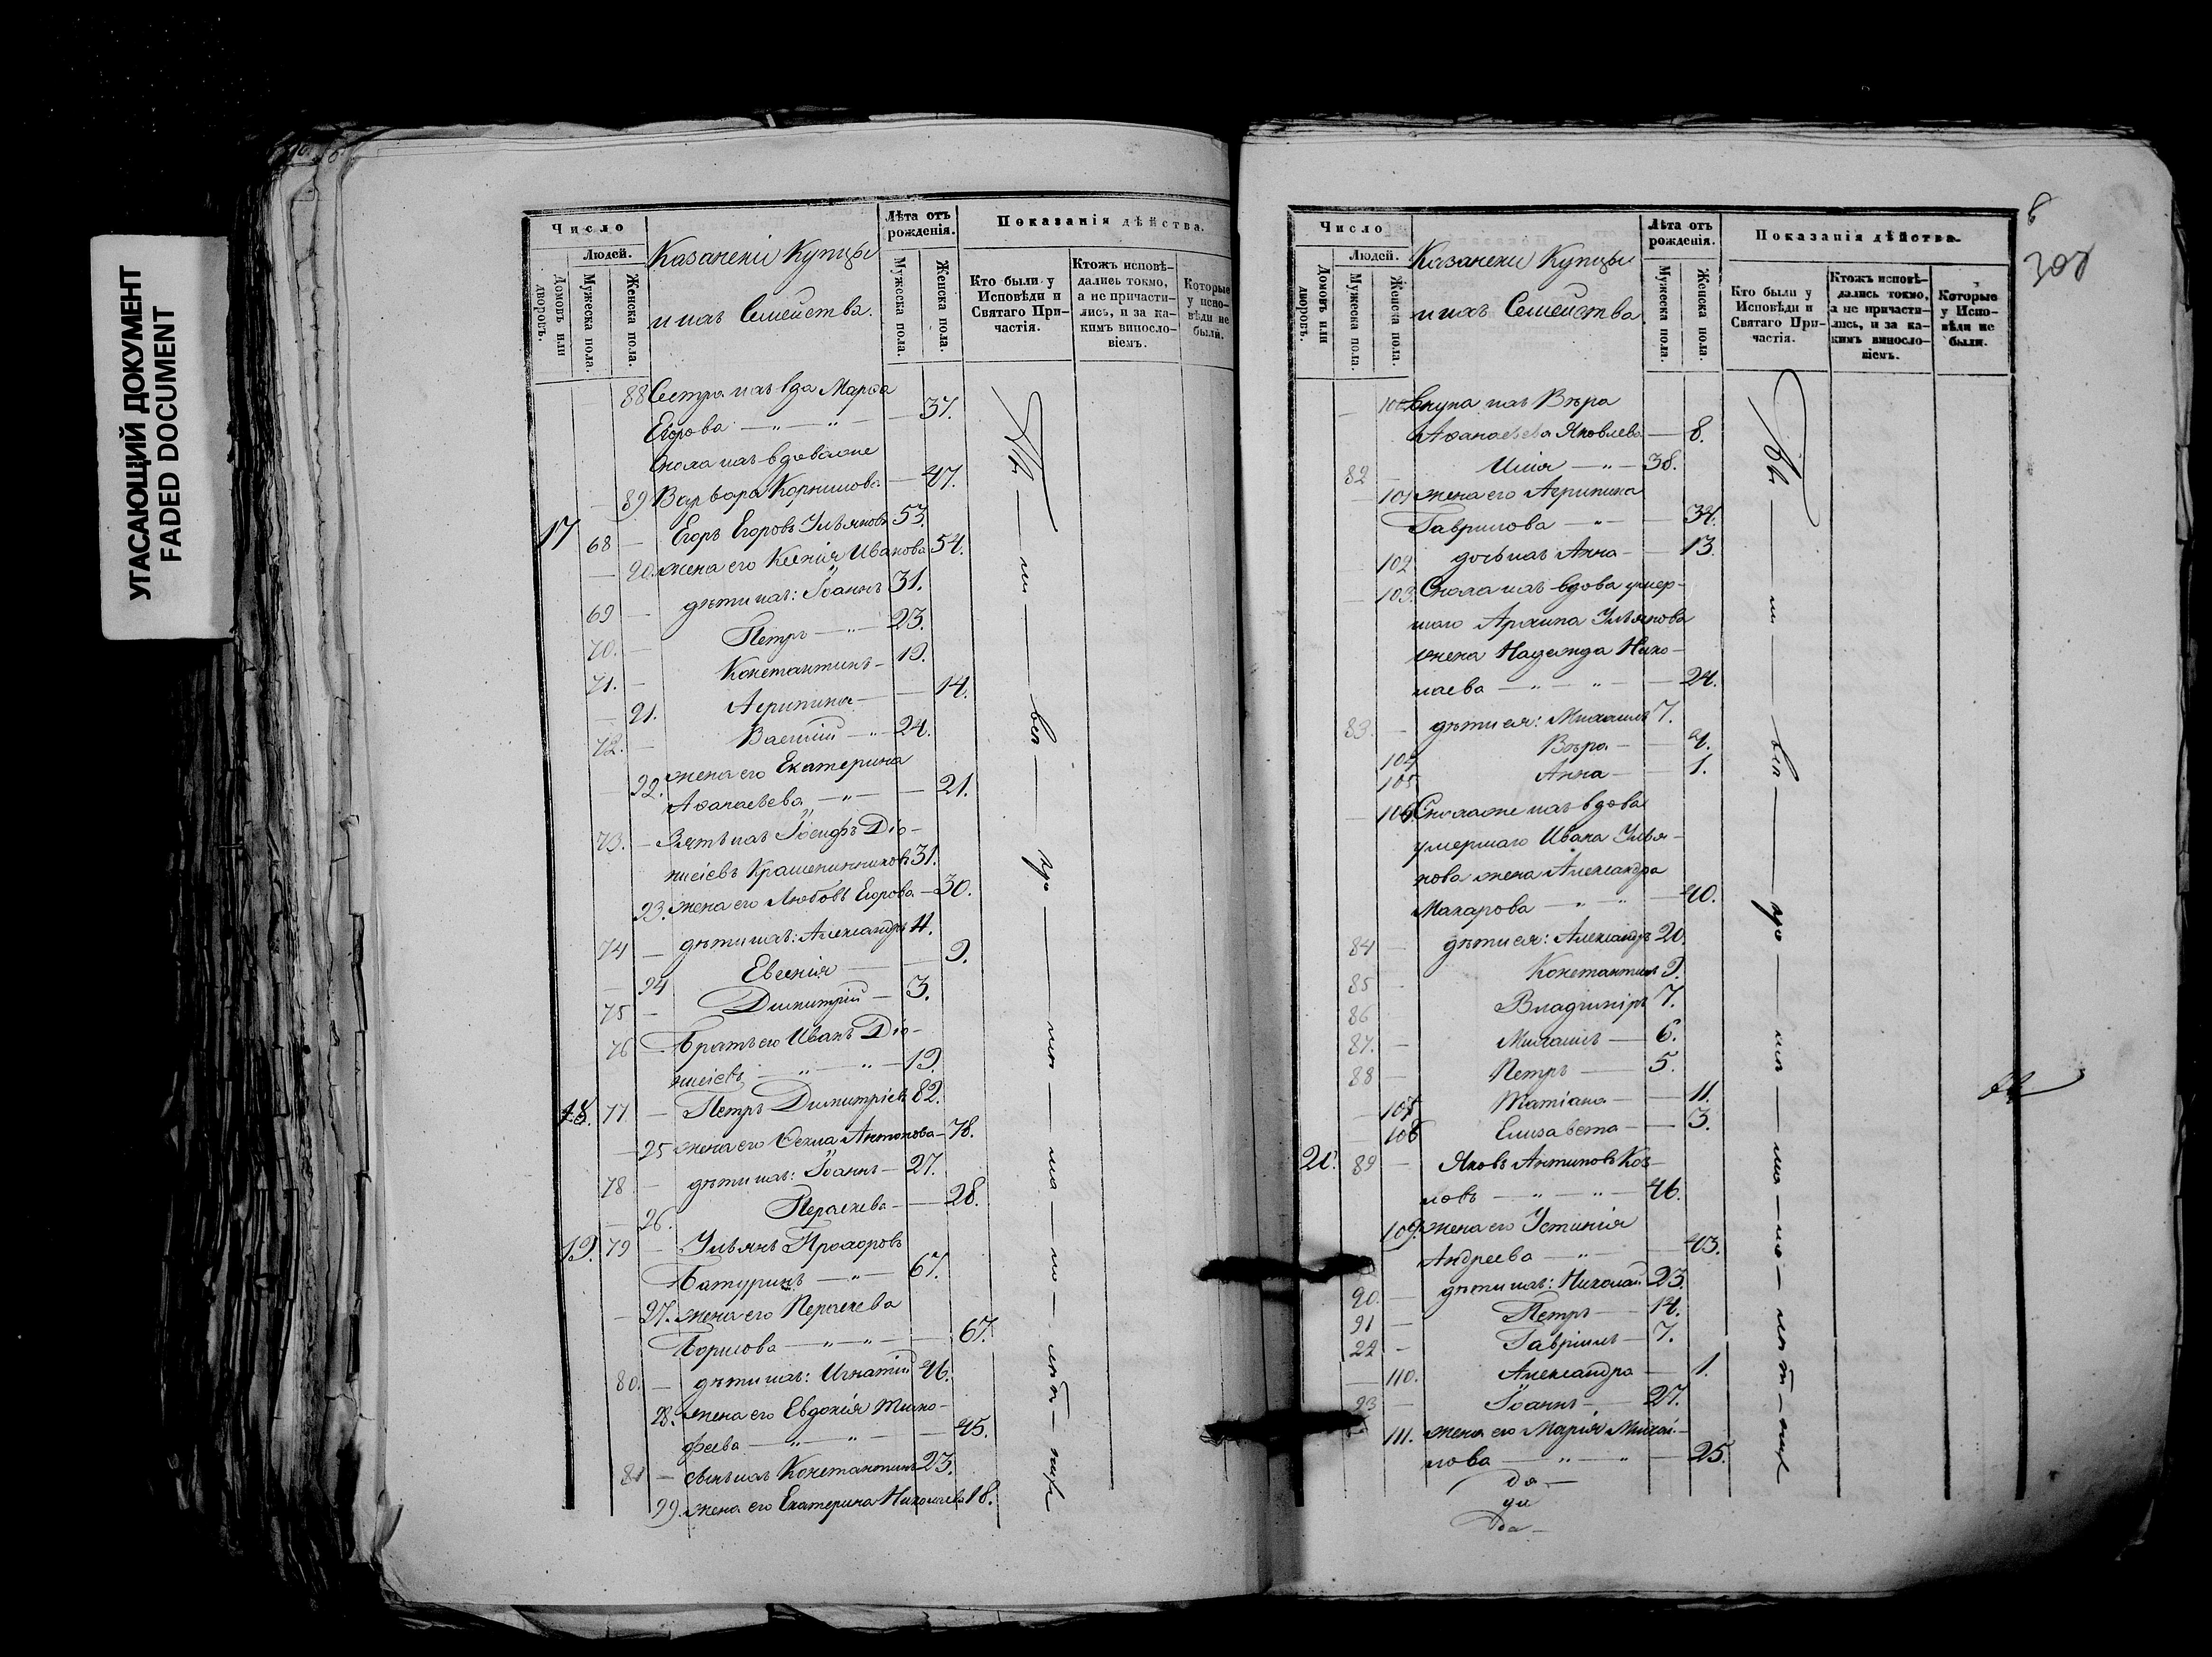 УГАСАЮЩИЙ ДОКУМЕНТ
FADED DOCUMENT
Число
Людей.
Домовъ или дворовъ.
Мужеска пола.
Женска пола.
Казанскіи Купцы
и ихъ Семейства.
Лѣта отъ рожденія.
Мужеска пола.
Женска пола.
Показанія дѣйства.
Кто были у Исповѣди и Святаго Причастія.
Ктожъ исповѣдались токмо, а не причастились, и за какимъ винословіемъ.
Которые у исповѣди не были.
88 Сестра ихъ вда Марѳа
Егорова — „ — „ — 37.
Сноха ихъ вдова же
89 Варвара Корнилова — 47.
17 68 — Егоръ Егоровъ Ульяновъ 53.
— 90. жена его Ксенія Иванова 54.
69 — дѣти ихъ: Іоаннъ 31.
70. — Петръ — „ — 23.
71. — Константинъ — 19.
— 91. Агрипина — — 14.
72. — Василій — „ 24.
— 92. жена его Екатерина
Аѳанасьева — „ — — 21.
73. — Зять ихъ Іосифъ Діо-
нисіевъ Крашенинниковъ 31.
93. жена его Любовь Егорова — 30.
74 — дѣти ихъ: Александръ 4.
— 94 Евгенія — — 9.
75 — Димитрій — 3.
76 — Братъ его Иванъ Діо-
нисіевъ — „ — „ — 19.
18. 77 — Петръ Димитріевъ 82.
— 95 жена его Ѳекла Антонова — 78.
78 — дѣти ихъ: Іоаннъ — 27.
— 96. Параскева — — 28.
19. 79 — Ульянъ Прохоровъ
Батуринъ — „ — 67.
— 97. жена его Параскева
Борисова — „ — „ — — 67.
80. — дѣти ихъ: Игнатій 46.
98. жена его Евдокія Тимо-
феева — „ — „ — — 45.
81 — сынъ ихъ Константинъ 23.
99. жена его Екатерина Николаева 18.
Число
Людей.
Домовъ или дворовъ.
Мужеска пола.
Женска пола.
Казанскіи Купцы
и ихъ Семейства
Лѣта отъ рожденія.
Мужеска пола.
Женска пола.
Показанія дѣйства.
Кто были у Исповѣди и Святаго Причастія.
Ктожъ исповѣдались токмо, а не причастились, и за какимъ винословіемъ.
Которые у Исповѣди не были.
— 100 Внука ихъ Вѣра
Аѳанасьева Яковлева — 8.
82 — Илія — „ — 38.
— 101 жена его Агрипина
Гаврилова — „ — — 34.
102 дочь ихъ Анна — — 13.
— 103. Сноха ихъ вдова умер-
шаго Архипа Ульянова
жена Надежда Нико-
лаева — „ — „ — — 24.
83. — дѣти ея: Михаилъ 7.
104 Вѣра — — 4.
105 Анна — — 1.
— 106 Сноха же ихъ вдова
умершаго Ивана Улья-
нова жена Александра
Макарова — „ — „ — 40.
84 — дѣти ея: Александръ 20.
85 — Константинъ 9.
86 — Владиміръ 7.
87. — Михаилъ — 6.
88 — Петръ — 5.
— 107 Татіана — — 11.
— 108 Елизавета — — 3.
89 — Яковъ Антиповъ Коз-
ловъ — „ — „ — 46.
109. жена его Устинія
Андреева — „ — — 43.
90. — дѣти ихъ: Николай 23.
91 — Петръ — 14.
Гавріилъ — 7.
— 110. Александра — — 1.
93 — Іоаннъ — 27.
— 111. жена его Марія Михай-
лова — „ — „ — — 25.